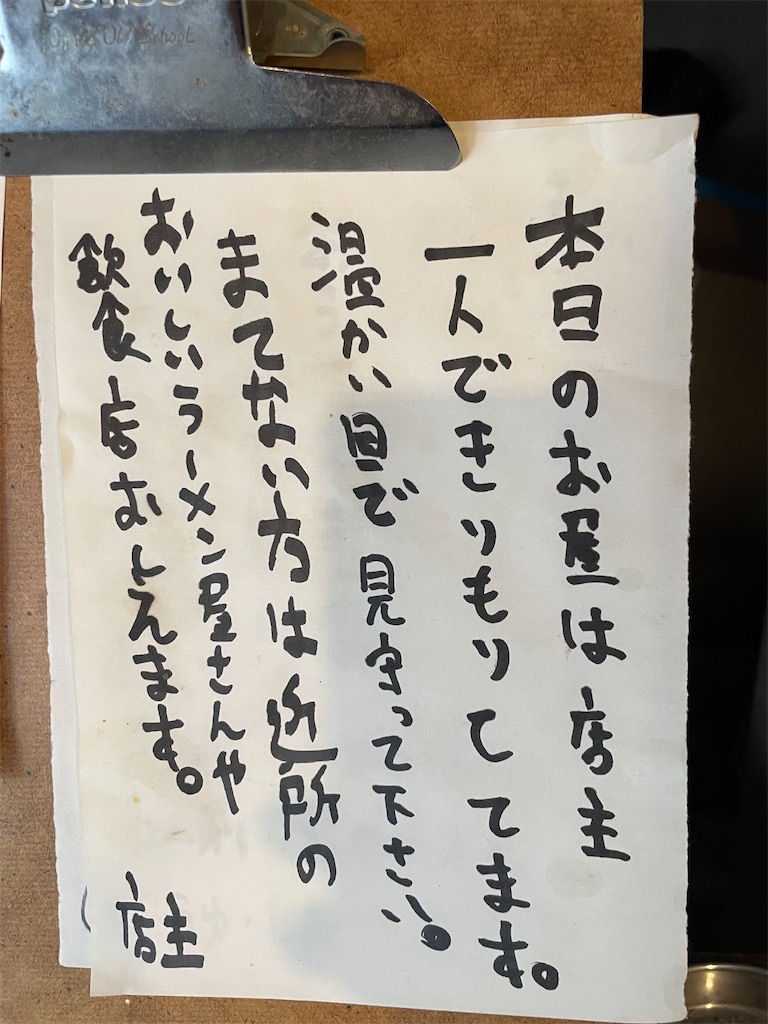 本日のお昼は店主
一人できりもりしてます。
温かい目で見守って下さい。
まてない方は近所の
おいしいラーメン屋さんや
飲食店おしえます。
店主